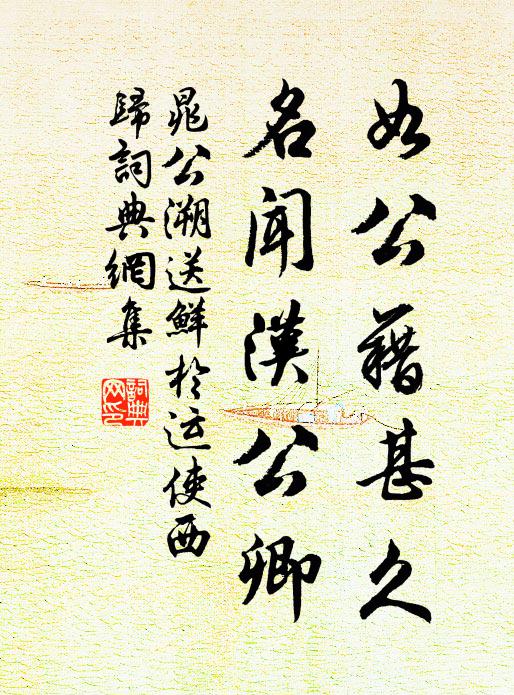 如公藉甚久
名闻漢公卿
晁公溯送鮮於运使西
歸詞典網集
詞典
网印